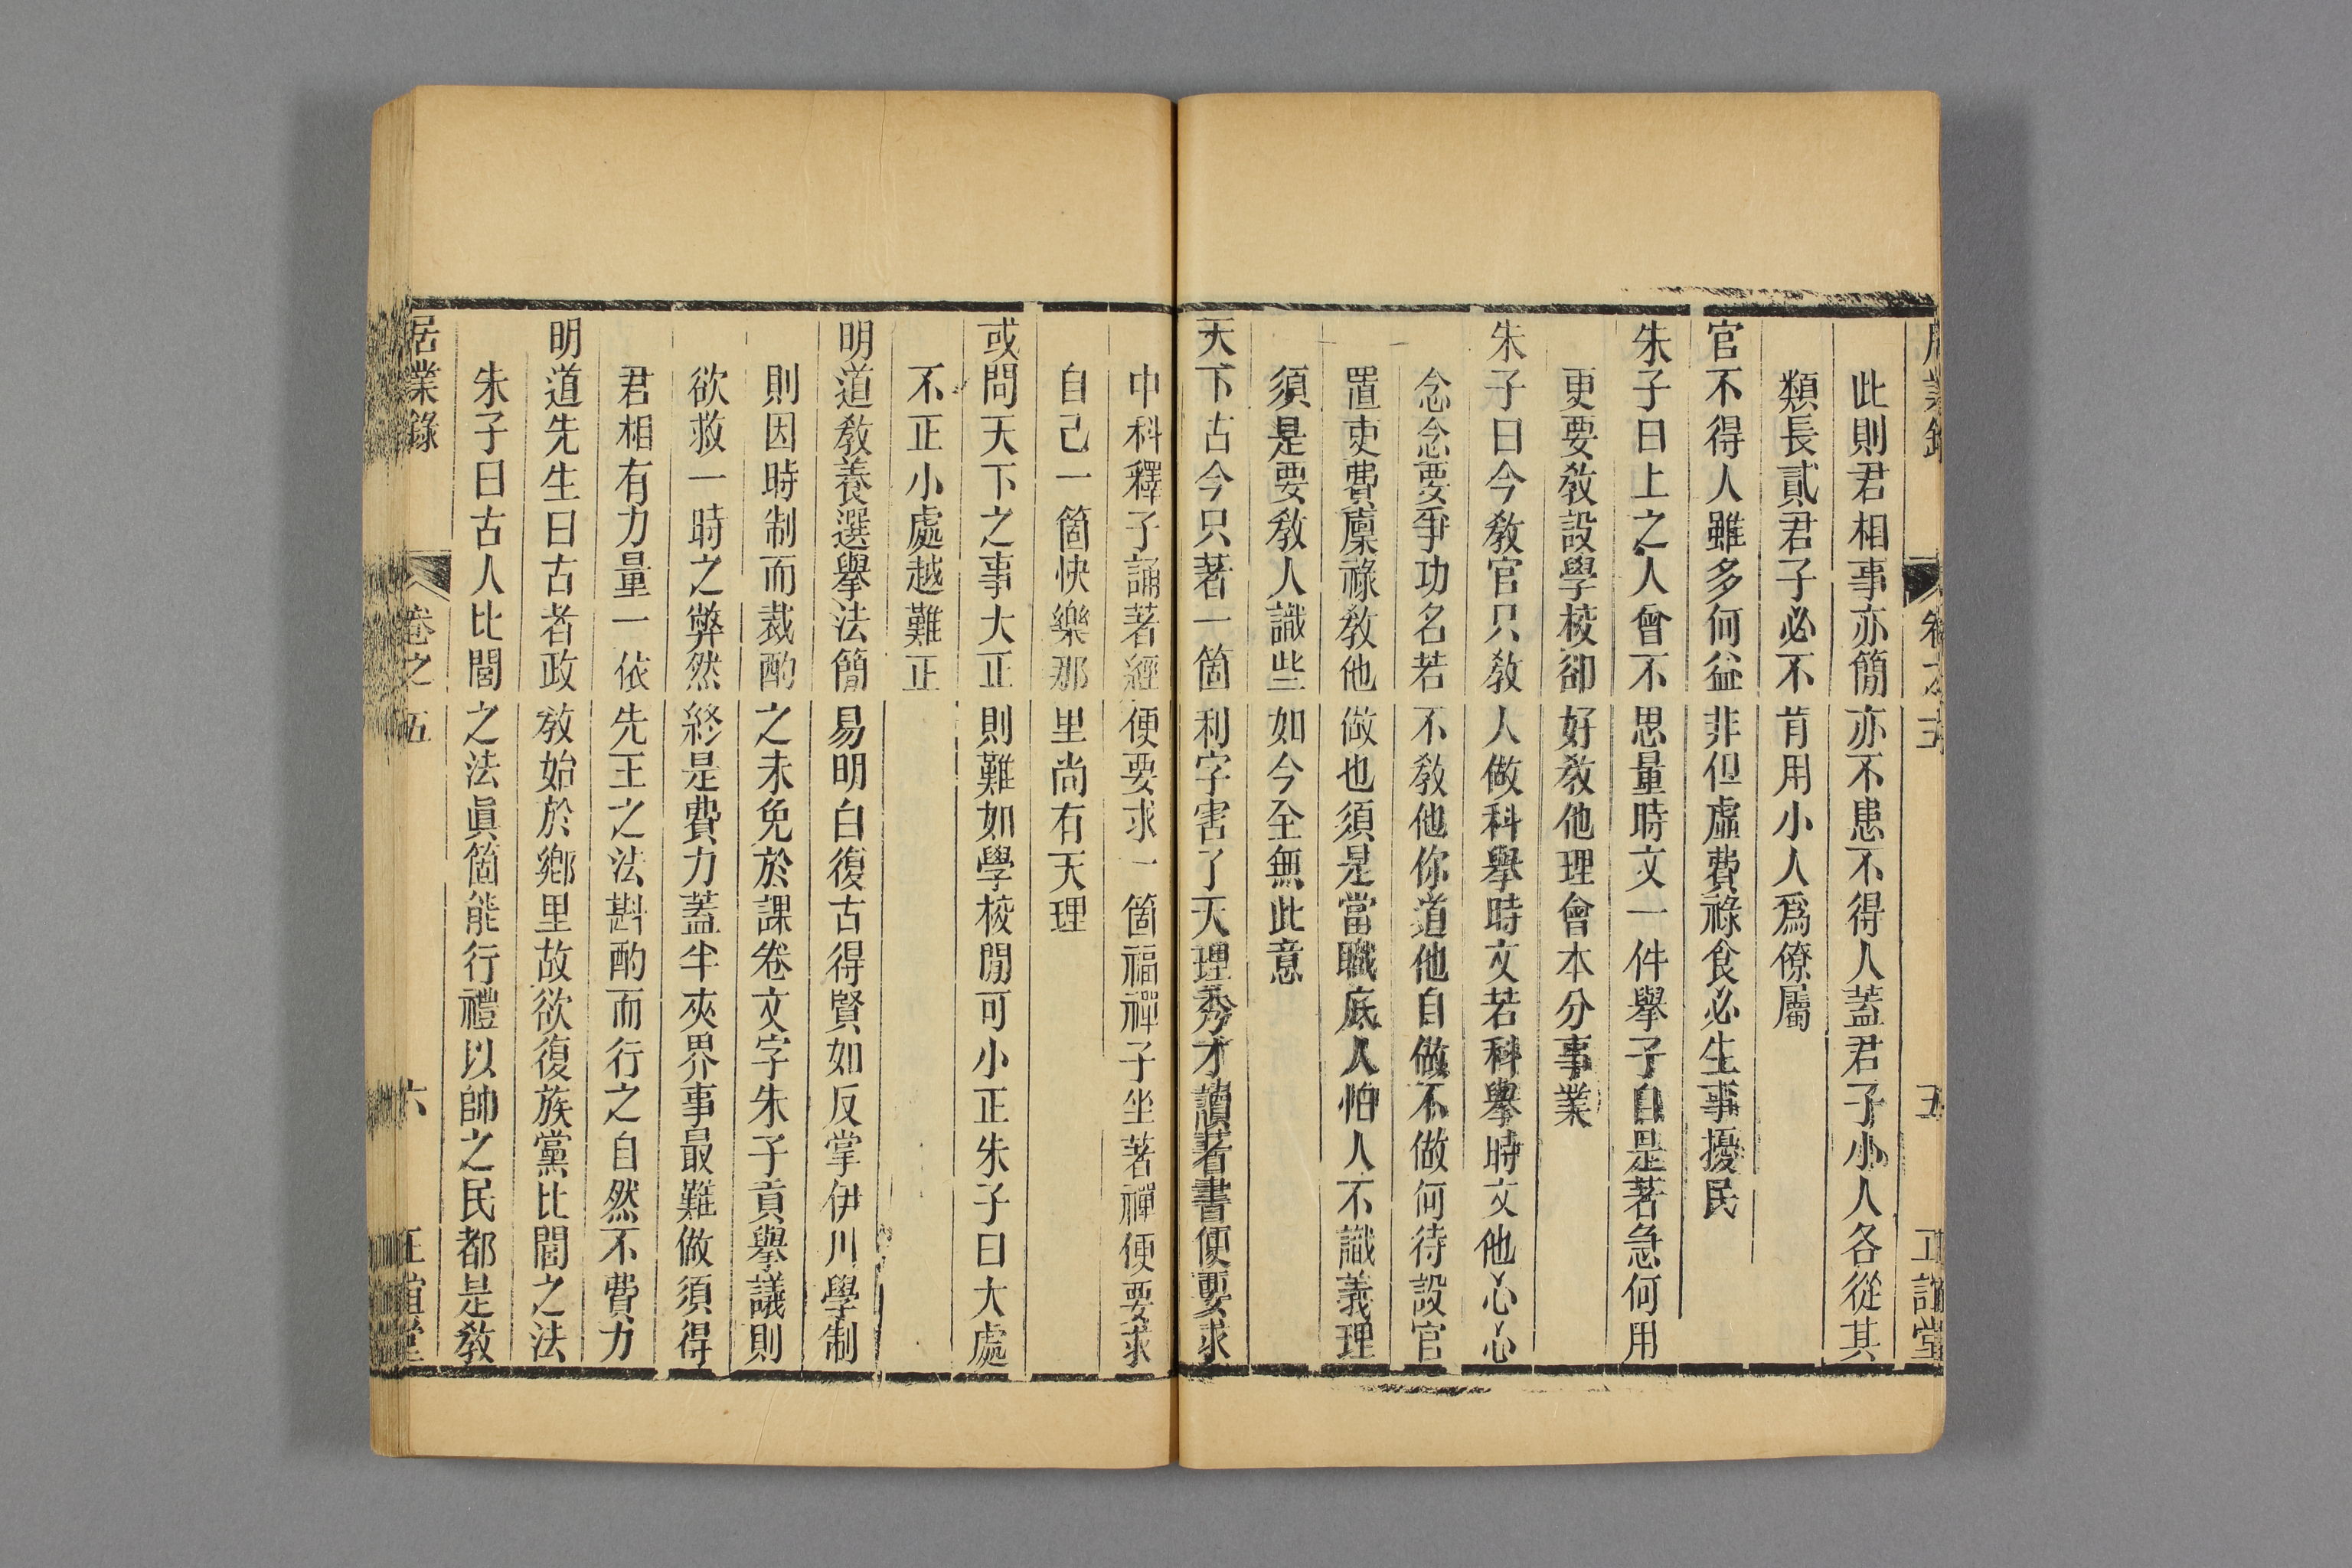 此則君相事亦簡亦不患不得人蓋君子小人各從其
類長貳君子必不肯用小人爲僚屬
官不得人雖多何益非但虛費祿食必生事擾民
朱子曰上之人曾不思量時文一件舉子自是著急何用
更要敎設學校卻好敎他理會本分事業
朱子曰今敎官只敎人做科舉時文若科舉時文他心心
念念要爭功名若不敎他你道他自做不做何待設官
置吏費廩祿敎他做也須是當職底人怕人不識義理
須是要敎人識些如今全無此意
天下古今只著一箇利字害了天理秀才讀著書便要求
中科釋子誦著經便要求一箇福禪子坐著禪便要求
自己一箇快樂那里尚有天理
或問天下之事大正則難如學校閒可小正朱子曰大處
不正小處越難正
明道敎養選擧法簡易明白復古得賢如反掌伊川學制
則因時制而裁酌之未免於課卷文字朱子貢擧議則
欲救一時之弊然終是費力蓋半夾界事最難做須得
君相有力量一依先王之法斟酌而行之自然不費力
明道先生曰古者政敎始於鄉里故欲復族黨比閭之法
朱子曰古人比閭之法眞箇能行禮以帥之民都是敎
居業錄 卷之五 六 正誼堂